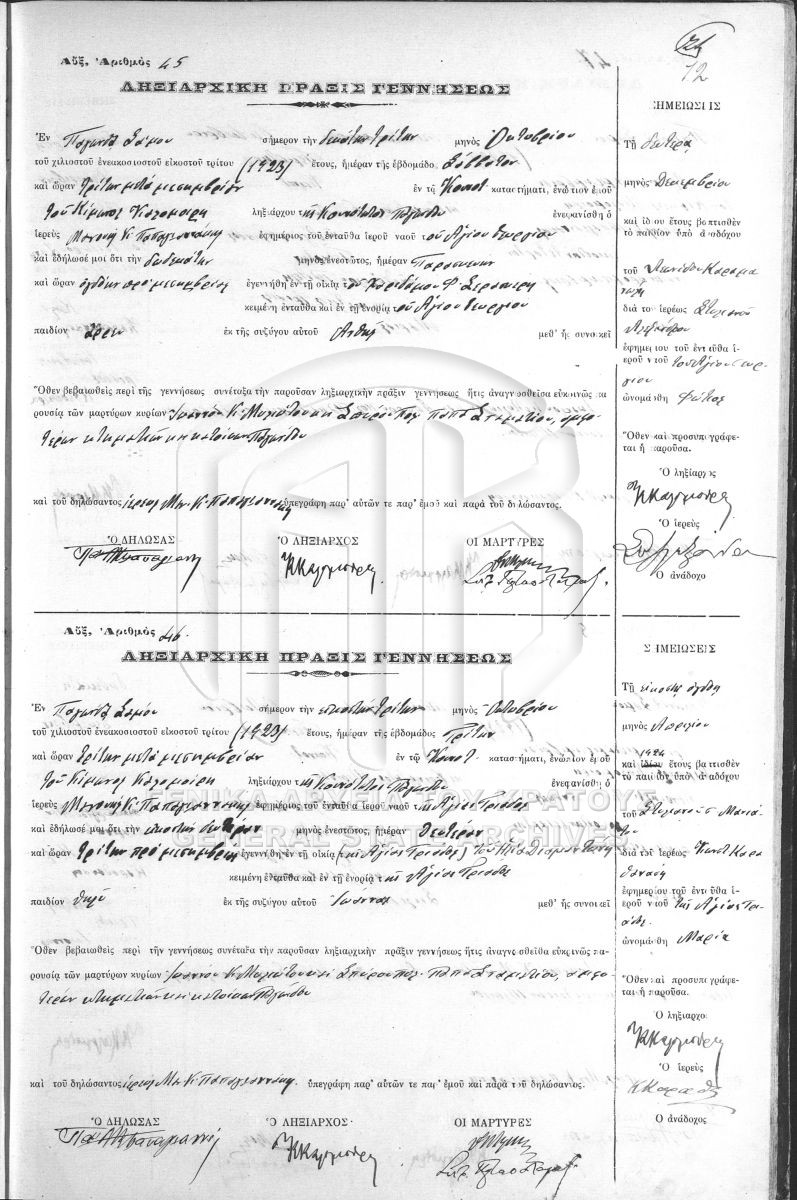 12
Αὔξ. Ἀριθμὸς 45
ΛΗΞΙΑΡΧΙΚΗ ΠΡΑΞΙΣ ΓΕΝΝΗΣΕΩΣ
Ἐν Παγώνδᾳ Σάμου σήμερον τὴν δεκάτην τρίτην μηνὸς Ὀκτωβρίου
τοῦ χιλιοστοῦ ἐνεακοσιοστοῦ εἰκοστοῦ τρίτου (1923) ἔτους, ἡμέραν τῆς ἑβδομάδο Σάββατον
καὶ ὥραν τρίτην μετὰ μεσημβρίαν ἐν τῷ Κοινοτ καταστήματι, ἐνώπιον ἐμοῦ
τοῦ Κίμωνος Καλομοίρη ληξιάρχου τῆς Κοινότητος Παγώνδου ἐνεφανίσθη ὁ
ἱερεὺς Μανουὴλ Κ. Παπαγιαννάκης ἐφημέριος τοῦ ἐνταῦθα ἱεροῦ ναοῦ τοῦ Ἁγίου Γεωργίου
καὶ ἐδήλωσέ μοι ὅτι τὴν δωδεκάτην μηνὸς ἐνεστῶτος, ἡμέραν Παρασκευὴν
καὶ ὥραν ὀγδόην πρὸ μεσημβρίας ἐγεννήθη ἐν τῇ οἰκίᾳ τοῦ
κειμένῃ ἐνταῦθα καὶ ἐν τῇ ἐνορίᾳ τοῦ Ἁγίου Γεωργίου
παιδίον ἄρρεν ἐκ τῆς συζύγου αὐτοῦ μεθ᾽ ἧς συνοικεῖ
Ὅθεν βεβαιωθεὶς περὶ τῆς γεννήσεως συνέταξα τὴν παροῦσαν ληξιαρχικὴν πρᾶξιν γεννήσεως ἥτις ἀναγνωσθεῖσα εὐκρινῶς πα-
ρουσίᾳ τῶν μαρτύρων κυρίων Ἰωάννου Κ. καὶ Σπύρου Παπα Σταματίου, ἀμφο-
τέρων κτηματιῶν κατοίκων Παγώνδου
καὶ τοῦ δηλώσαντος ἱερέως Μαν. Κ. Παπαγιαννάκη ὑπεγράφη παρ᾽ αὐτῶν τε παρ᾽ ἐμοῦ καὶ παρὰ τοῦ δηλώσαντος.
Ὁ ΔΗΛΩΣΑΣ Ὁ ΛΗΞΙΑΡΧΟΣ ΟΙ ΜΑΡΤΥΡΕΣ
ΣΗΜΕΙΩΣΕΙΣ
Τῇ δευτέρᾳ
μηνὸς Δεκεμβρίου
καὶ ἰδίου ἔτους βαπτισθὲν
τὸ παιδίον ὑπὸ ἀναδόχου
τοῦ
διὰ τοῦ ἱερέως
ἐφημερίου τοῦ ἐνταῦθα ἱ-
εροῦ ναοῦ τοῦ Ἁγίου Γεωρ-
γίου
ὠνομάσθη Φώτιος
Ὅθεν καὶ προσυπογράφε-
ται ἡ παροῦσα.
Ὁ ληξίαρχος
Ὁ ἱερεὺς
Ὁ ἀνάδοχο
Αὔξ. Ἀριθμὸς 46
ΛΗΞΙΑΡΧΙΚΗ ΠΡΑΞΙΣ ΓΕΝΝΗΣΕΩΣ
Ἐν Παγώνδᾳ Σάμου σήμερον τὴν εἰκοστὴν τρίτην μηνὸς Ὀκτωβρίου
τοῦ χιλιοστοῦ ἐνεακοσιοστοῦ εἰκοστοῦ τρίτου (1923) ἔτους, ἡμέραν τῆς ἑβδομάδος Τρίτην
καὶ ὥραν τρίτην μετὰ μεσημβρίαν ἐν τῷ Κοινοτ. καταστήματι, ἐνώπιον ἐμοῦ
τοῦ Κίμωνος Καλομοίρη ληξιάρχου τῆς Κοινότητος Παγώνδου ἐνεφανίσθη ὁ
ἱερεὺς Μανουὴλ Κ. Παπαγιαννάκης ἐφημέριος τοῦ ἐνταῦθα ἱεροῦ ναοῦ τῆς Ἁγίας Τριάδος
καὶ ἐδήλωσέ μοι ὅτι τὴν εἰκοστὴν δευτέραν μηνὸς ἐνεστῶτος, ἡμέραν Δευτέραν
καὶ ὥραν τρίτην πρὸ μεσημβρίας ἐγεννήθη ἐν τῇ οἰκίᾳ (τῆς Ἁγίας Τριάδος) τοῦ
κειμένῃ ἐνταῦθα καὶ ἐν τῇ ἐνορίᾳ τῆς Ἁγίας Τριάδος
παιδίον θῆλυ ἐκ τῆς συζύγου αὐτοῦ Ἰωάννας μεθ᾽ ἧς συνοικεῖ
Ὅθεν βεβαιωθεὶς περὶ τῆς γεννήσεως συνέταξα τὴν παροῦσαν ληξιαρχικὴν πρᾶξιν γεννήσεως ἥτις ἀναγνωσθεῖσα εὐκρινῶς πα-
ρουσίᾳ τῶν μαρτύρων κυρίων Ἰωάννου Κ. καὶ Σπύρου Παπα Σταματίου, ἀμφο-
τέρων κτηματιῶν κατοίκων Παγώνδου
καὶ τοῦ δηλώσαντος ἱερέως Μαν. Κ. Παπαγιαννάκη ὑπεγράφη παρ᾽ αὐτῶν τε παρ᾽ ἐμοῦ καὶ παρὰ τοῦ δηλώσαντος.
Ὁ ΔΗΛΩΣΑΣ Ὁ ΛΗΞΙΑΡΧΟΣ ΟΙ ΜΑΡΤΥΡΕΣ
ΣΗΜΕΙΩΣΕΙΣ
Τῇ εἰκοστῇ ὀγδόῃ
μηνὸς Ἀπριλίου
1924
καὶ ἰδίου ἔτους βαπτισθὲν
τὸ παιδίον ὑπὸ ἀναδόχου
τοῦ
διὰ τοῦ ἱερέως
ἐφημερίου τοῦ ἐνταῦθα ἱ-
εροῦ ναοῦ τῆς Ἁγίας Τρι-
άδος
ὠνομάσθη Μαρία
Ὅθεν καὶ προσυπογράφε-
ται ἡ παροῦσα.
Ὁ ληξίαρχο
Ὁ ἱερεὺς
Ὁ ἀνάδοχος
ΓΕΝΙΚΑ ΑΡΧΕΙΑ ΤΟΥ ΚΡΑΤΟΥΣ
GENERAL STATE ARCHIVES